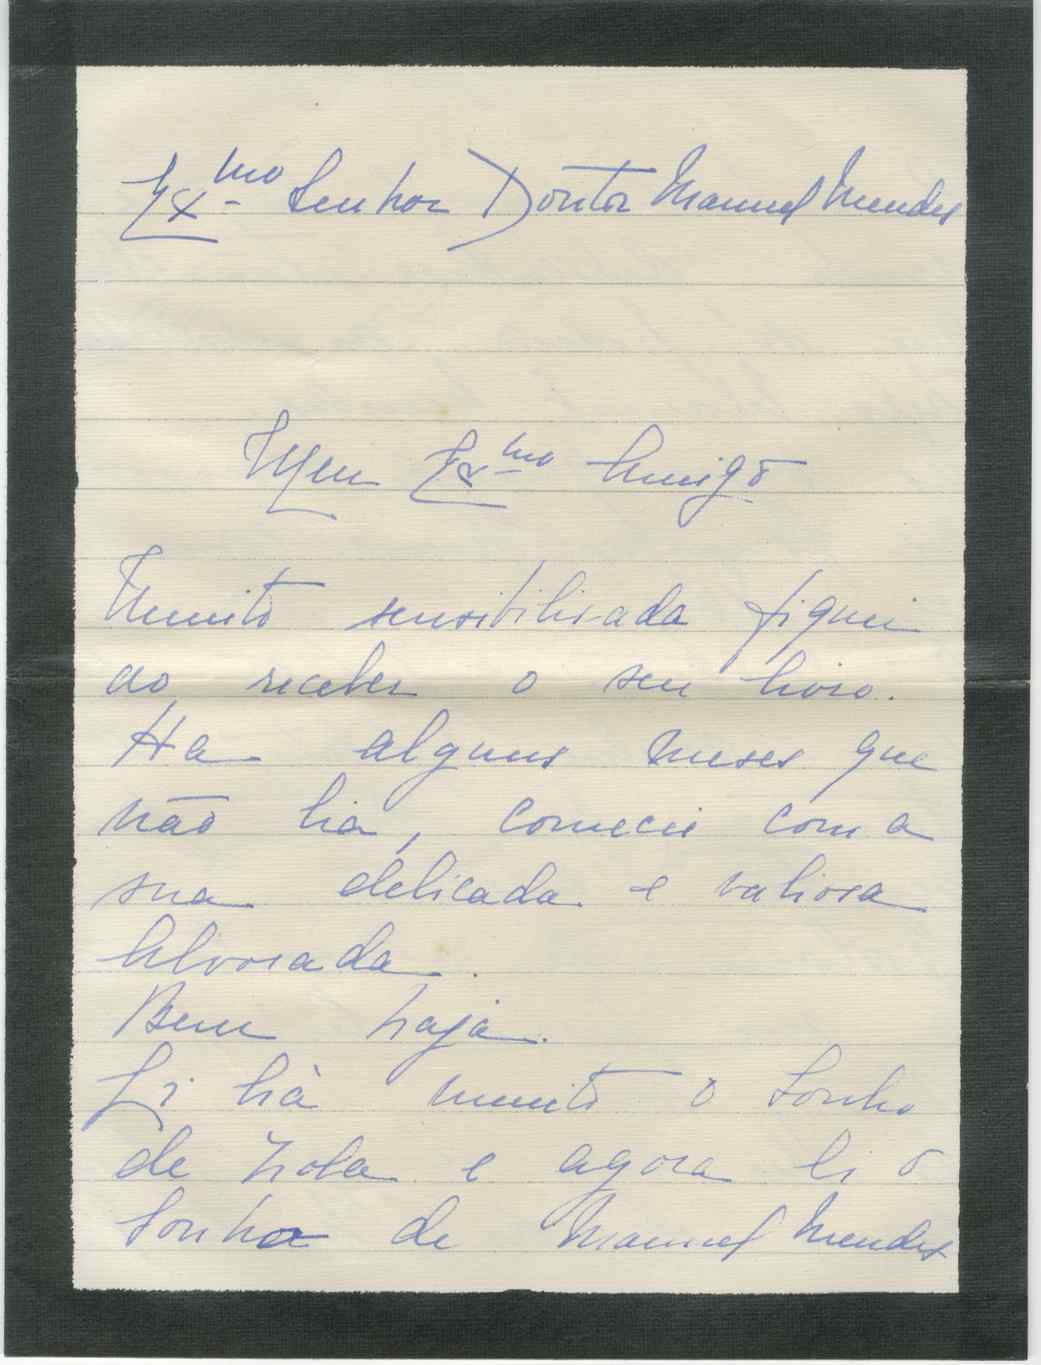 Exmo Senhor Doutor Manuel Mendes
Meu Exmo Amigo
Muito sensibilisada fiquei
ao receber o seu livro.
Ha alguns meses que
não lia, comecei com a
sua delicada e valiosa
Alvorada.
Bem haja.
Li há muito o Sonho
de Zola e agora li o
Sonho de Manuel Mendes